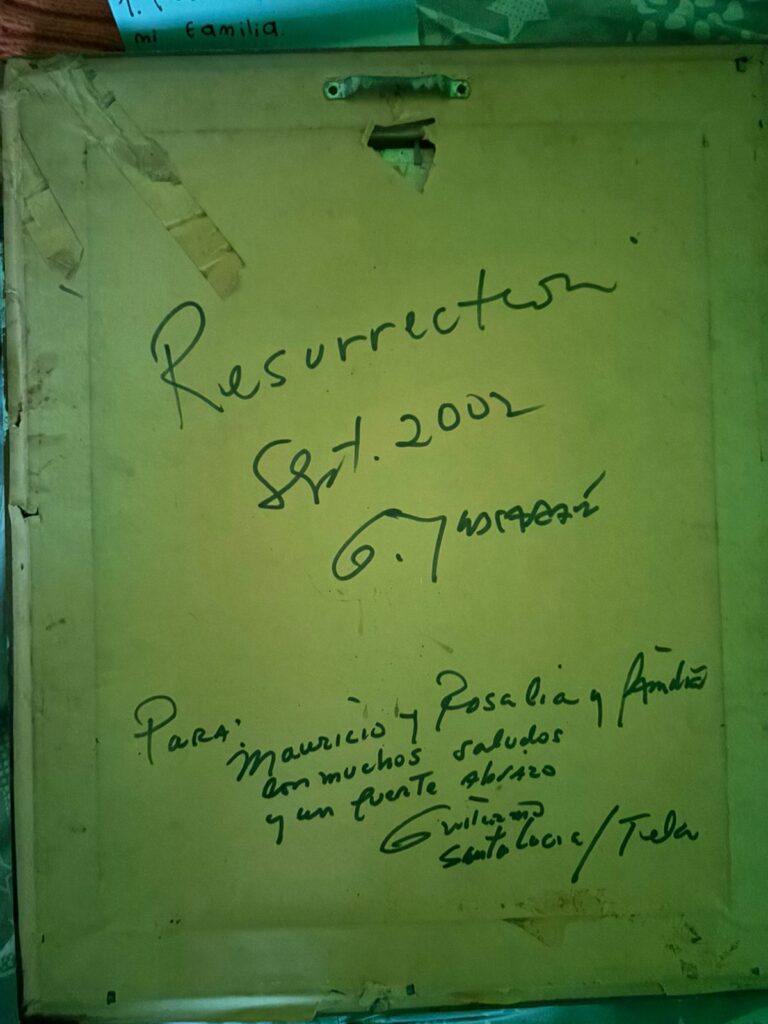 mi familia.
Resurrection
Sept. 2002
G. Yuscarán
Para:
Mauricio y Rosalia y familia
con muchos saludos
y un fuerte abrazo
Guillermo
Santa Lucia / Tela